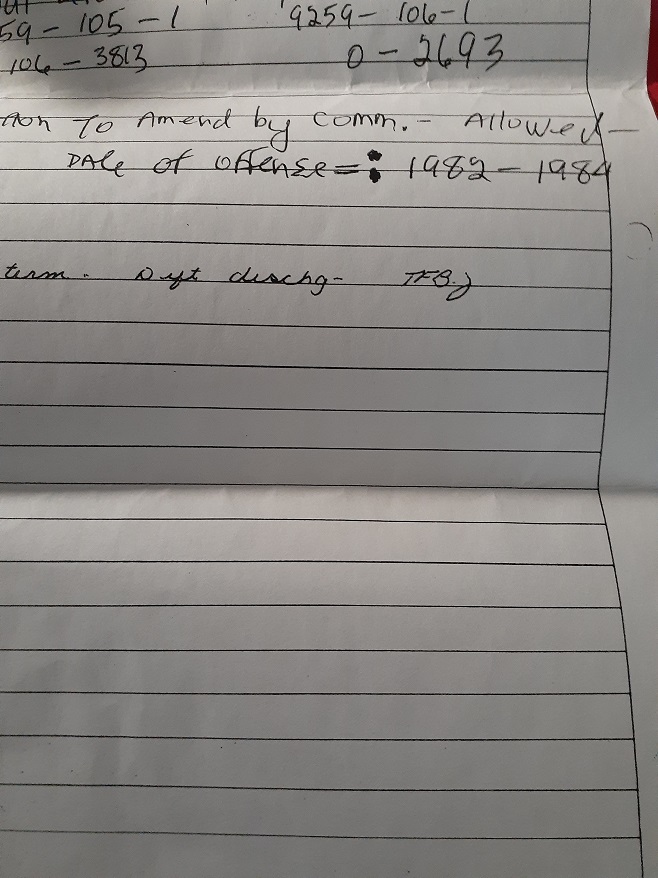 59 - 105 - 1 9259 - 106 - 1
106 - 3813 0 - 2693
tion To Amend by Comm. - Allowed -
DAte of offense = : 1982 - 1984
term. Dft dischg - TFB.J